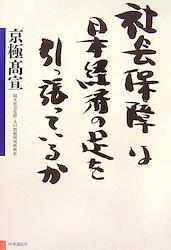 社会保障は
日本経済の足を
引っ張っているか
京極髙宣
国立社会保障・人口問題研究所所長
時事通信社